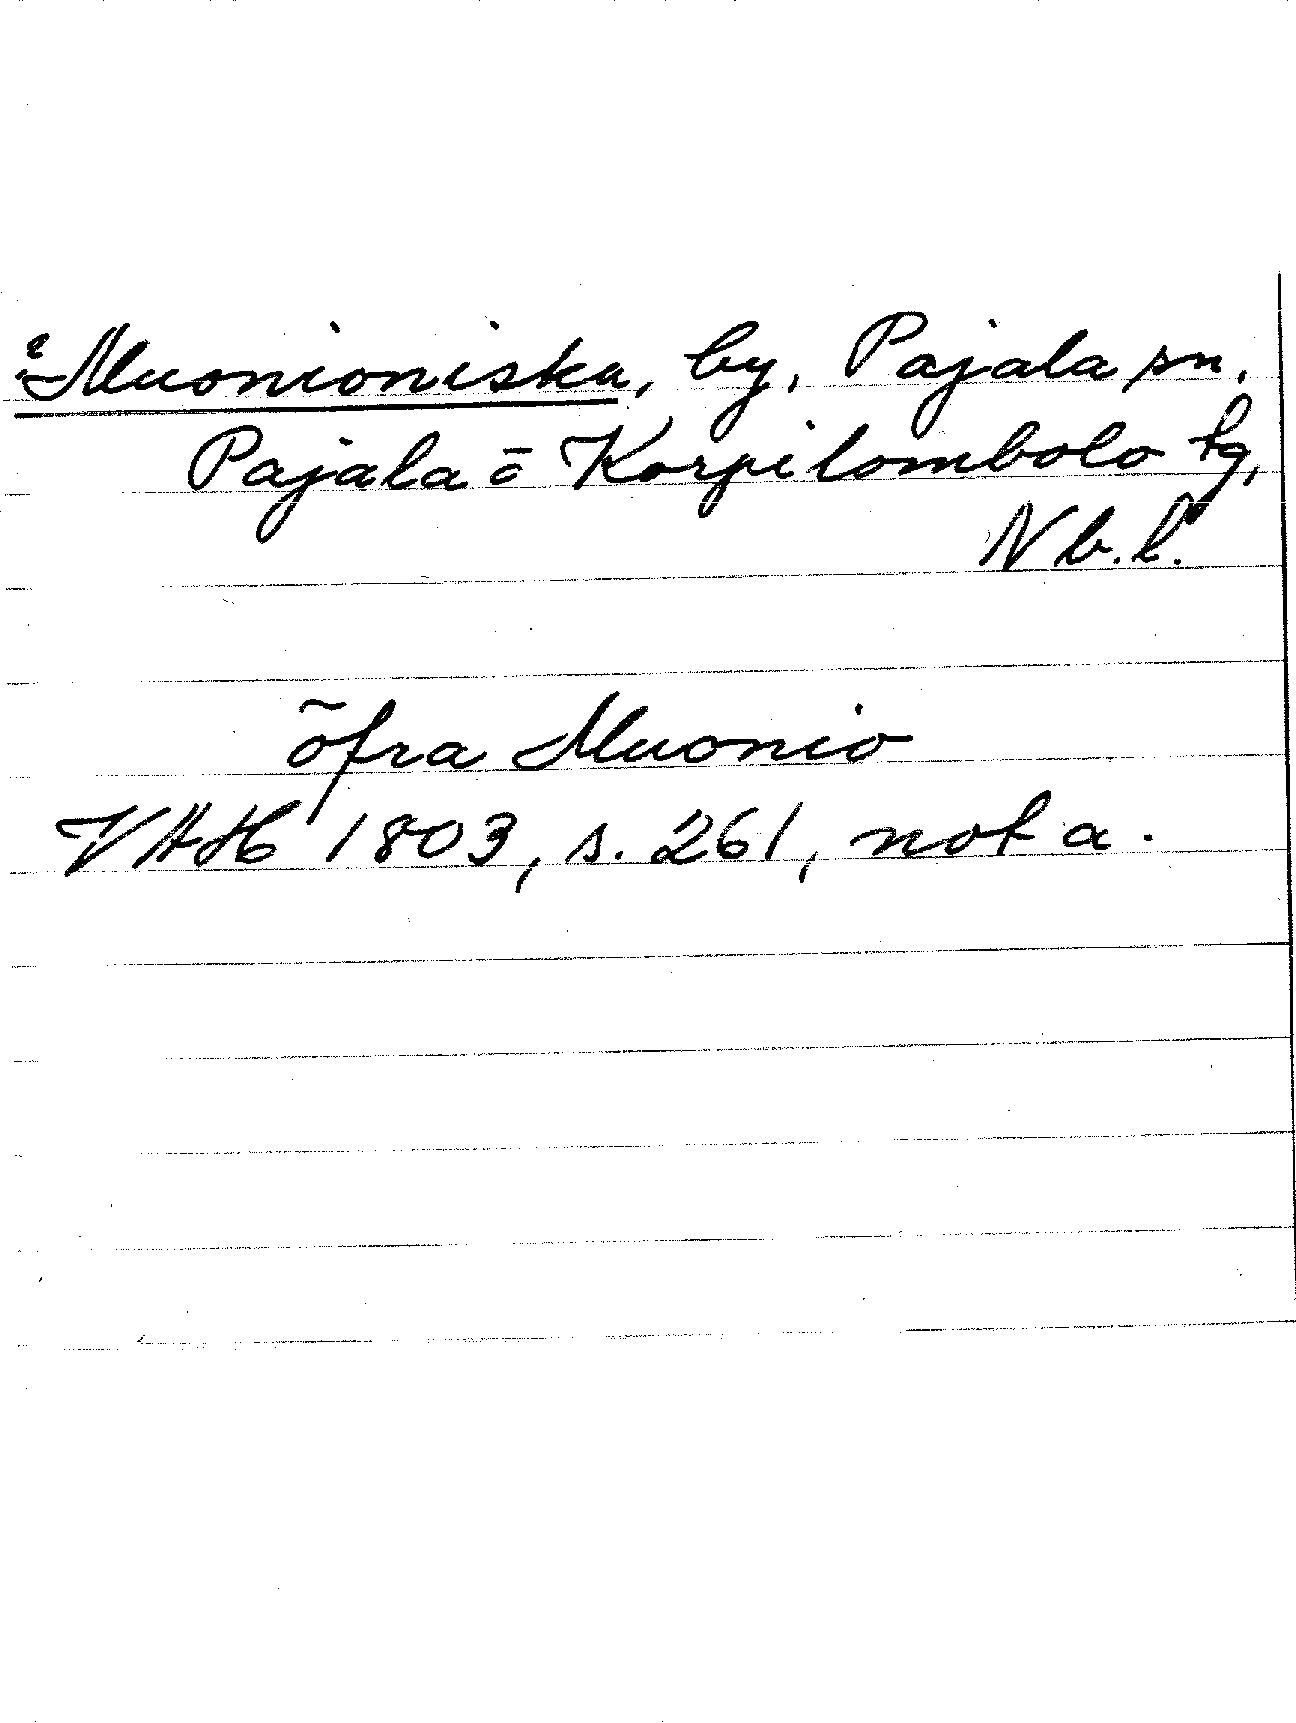 ? Muonioniska, by, Pajala sn,
Pajala ö Korpilombolo tg,
Nb.l.
öfra Muonio
VAH 1803, s. 261, not a.